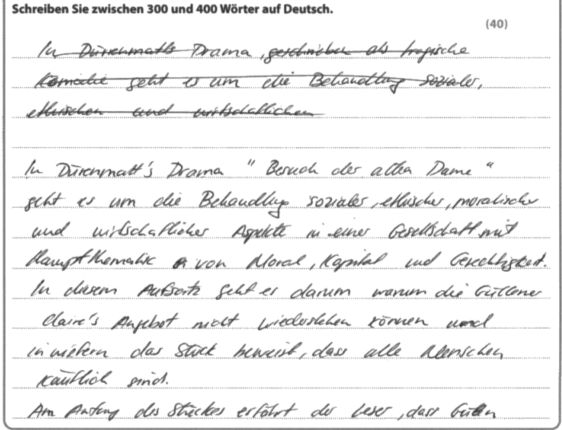 Schreiben Sie zwischen 300 und 400 Wörter auf Deutsch.
(40)
In Dürrenmatts Drama, geschrieben als tragische
Komödie geht es um die Behandlung sozialer,
ethischen und wirtschaftlichen
In Dürenmatt's Drama "Besuch der alten Dame"
geht es um die Behandlug sozialer, ethischer, moralischer
und wirtschaflicher Aspekte in einer Gesellschaft mit
Haumpfthematik von Moral, Kapital und Gerechtigkeit.
In diesem Aufsatz geht es darum warum die Güllener
Claire's Angebot nicht wiederstehen können und
inwiefern das Stück beweist, dass alle Menschen
käuflich sind.
Am Anfang des Stückes erfährt der Leser, dass Güllen